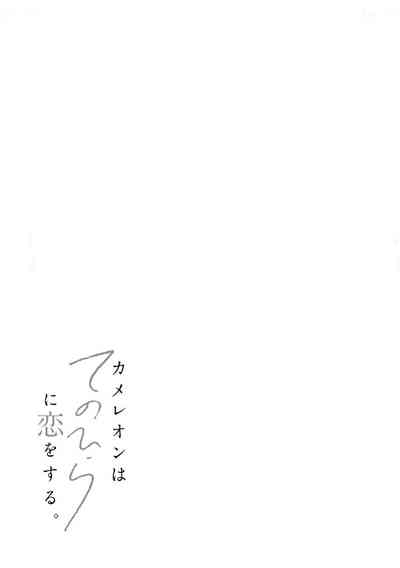 カメレオンは
てのひら
に恋をする。